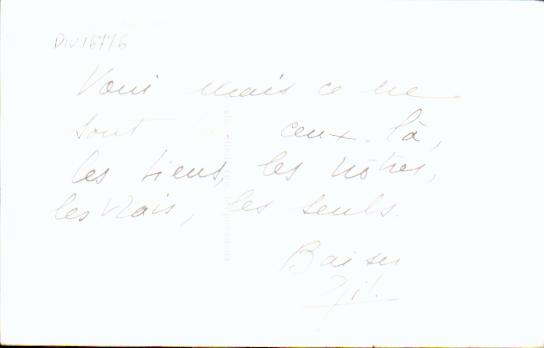 DIV16776
mais ce ne
sont ceux-là,
les tiens, les nôtres,
les vrais, les seuls.
Baiser